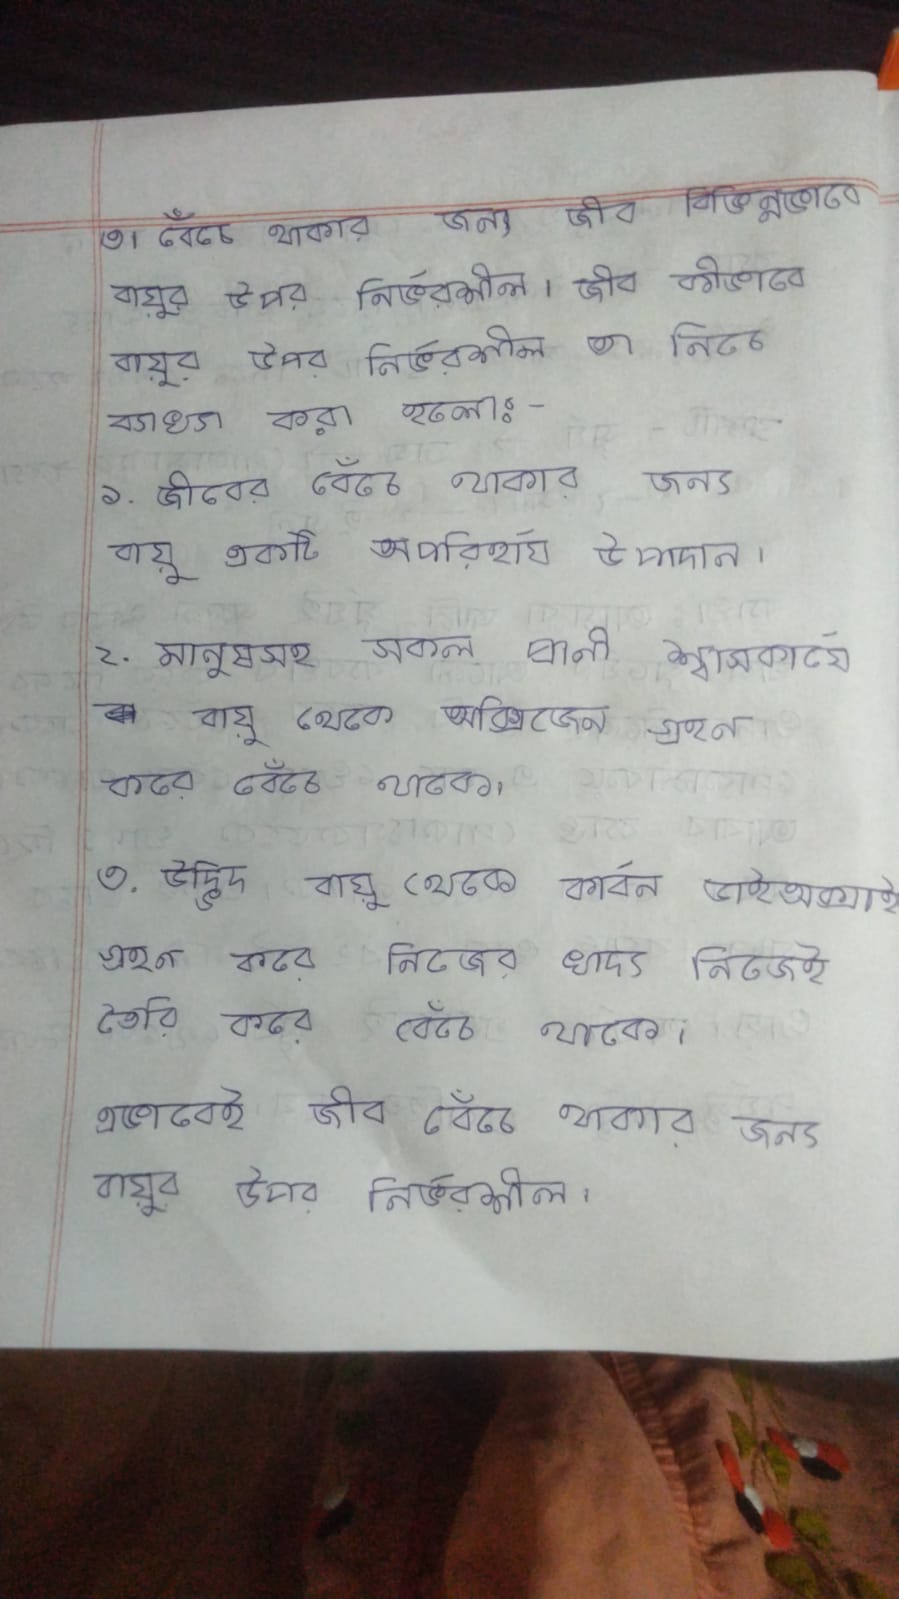 ৩। বেঁচে থাকার জন্য জীব বিভিন্নভাবে
বায়ুর উপর নির্ভরশীল। জীব কীভাবে
বায়ুর উপর নির্ভরশীল তা নিচে
ব্যাখ্যা করা হলোঃ-
১. জীবের বেঁচে থাকার জন্য
বায়ু একটি অপরিহার্য উপাদান।
২. মানুষসহ সকল প্রানী শ্বাসকার্যে
বায়ু থেকে অক্সিজেন গ্রহন
করে বেঁচে থাকে।
৩. উদ্ভিদ বায়ু থেকে কার্বন ডাইঅক্সাই
গ্রহন করে নিজের খাদ্য নিজেই
তৈরি করে বেঁচে থাকে।
এভাবেই জীব বেঁচে থাকার জন্য
বায়ুর উপর নির্ভরশীল।